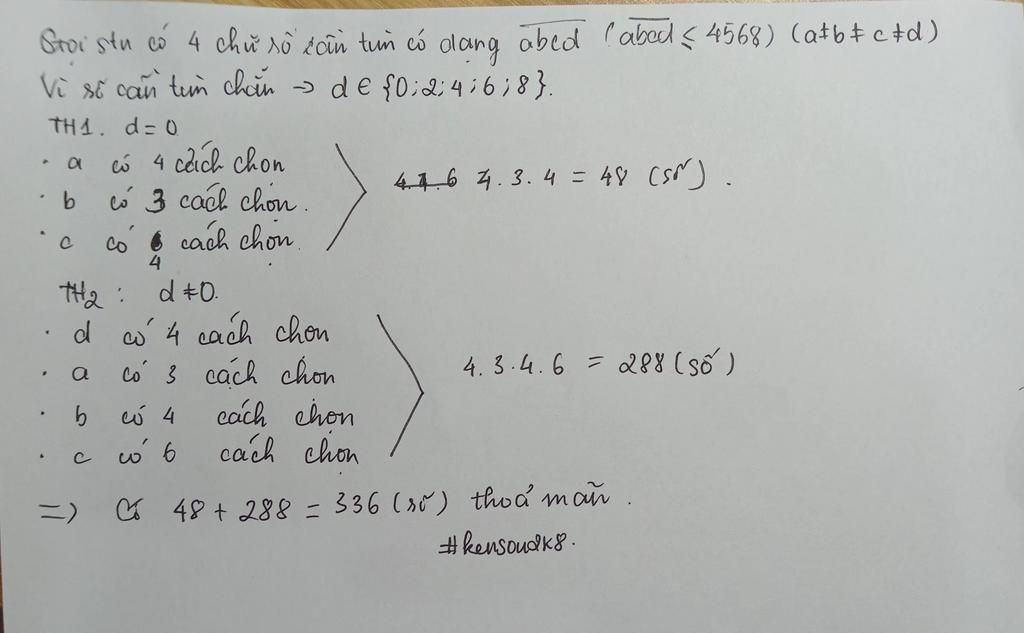 Gọi stn có 4 chữ số cần tìm có dạng abcd (abcd ≤ 4568) (a≠b≠c≠d)
Vì số cần tìm chẵn → d ∈ {0;2;4;6;8}.
TH1. d=0
· a có 4 cách chọn
· b có 3 cách chọn.
· c có 4 cách chọn.
4.1.6 4.3.4 = 48 (số).
TH2: d≠0.
· d có 4 cách chọn
· a có 3 cách chọn
· b có 4 cách chọn
· c có 6 cách chọn
4.3.4.6 = 288 (số)
=> Có 48+288 = 336 (số) thoả mãn.
#kensou2k8.